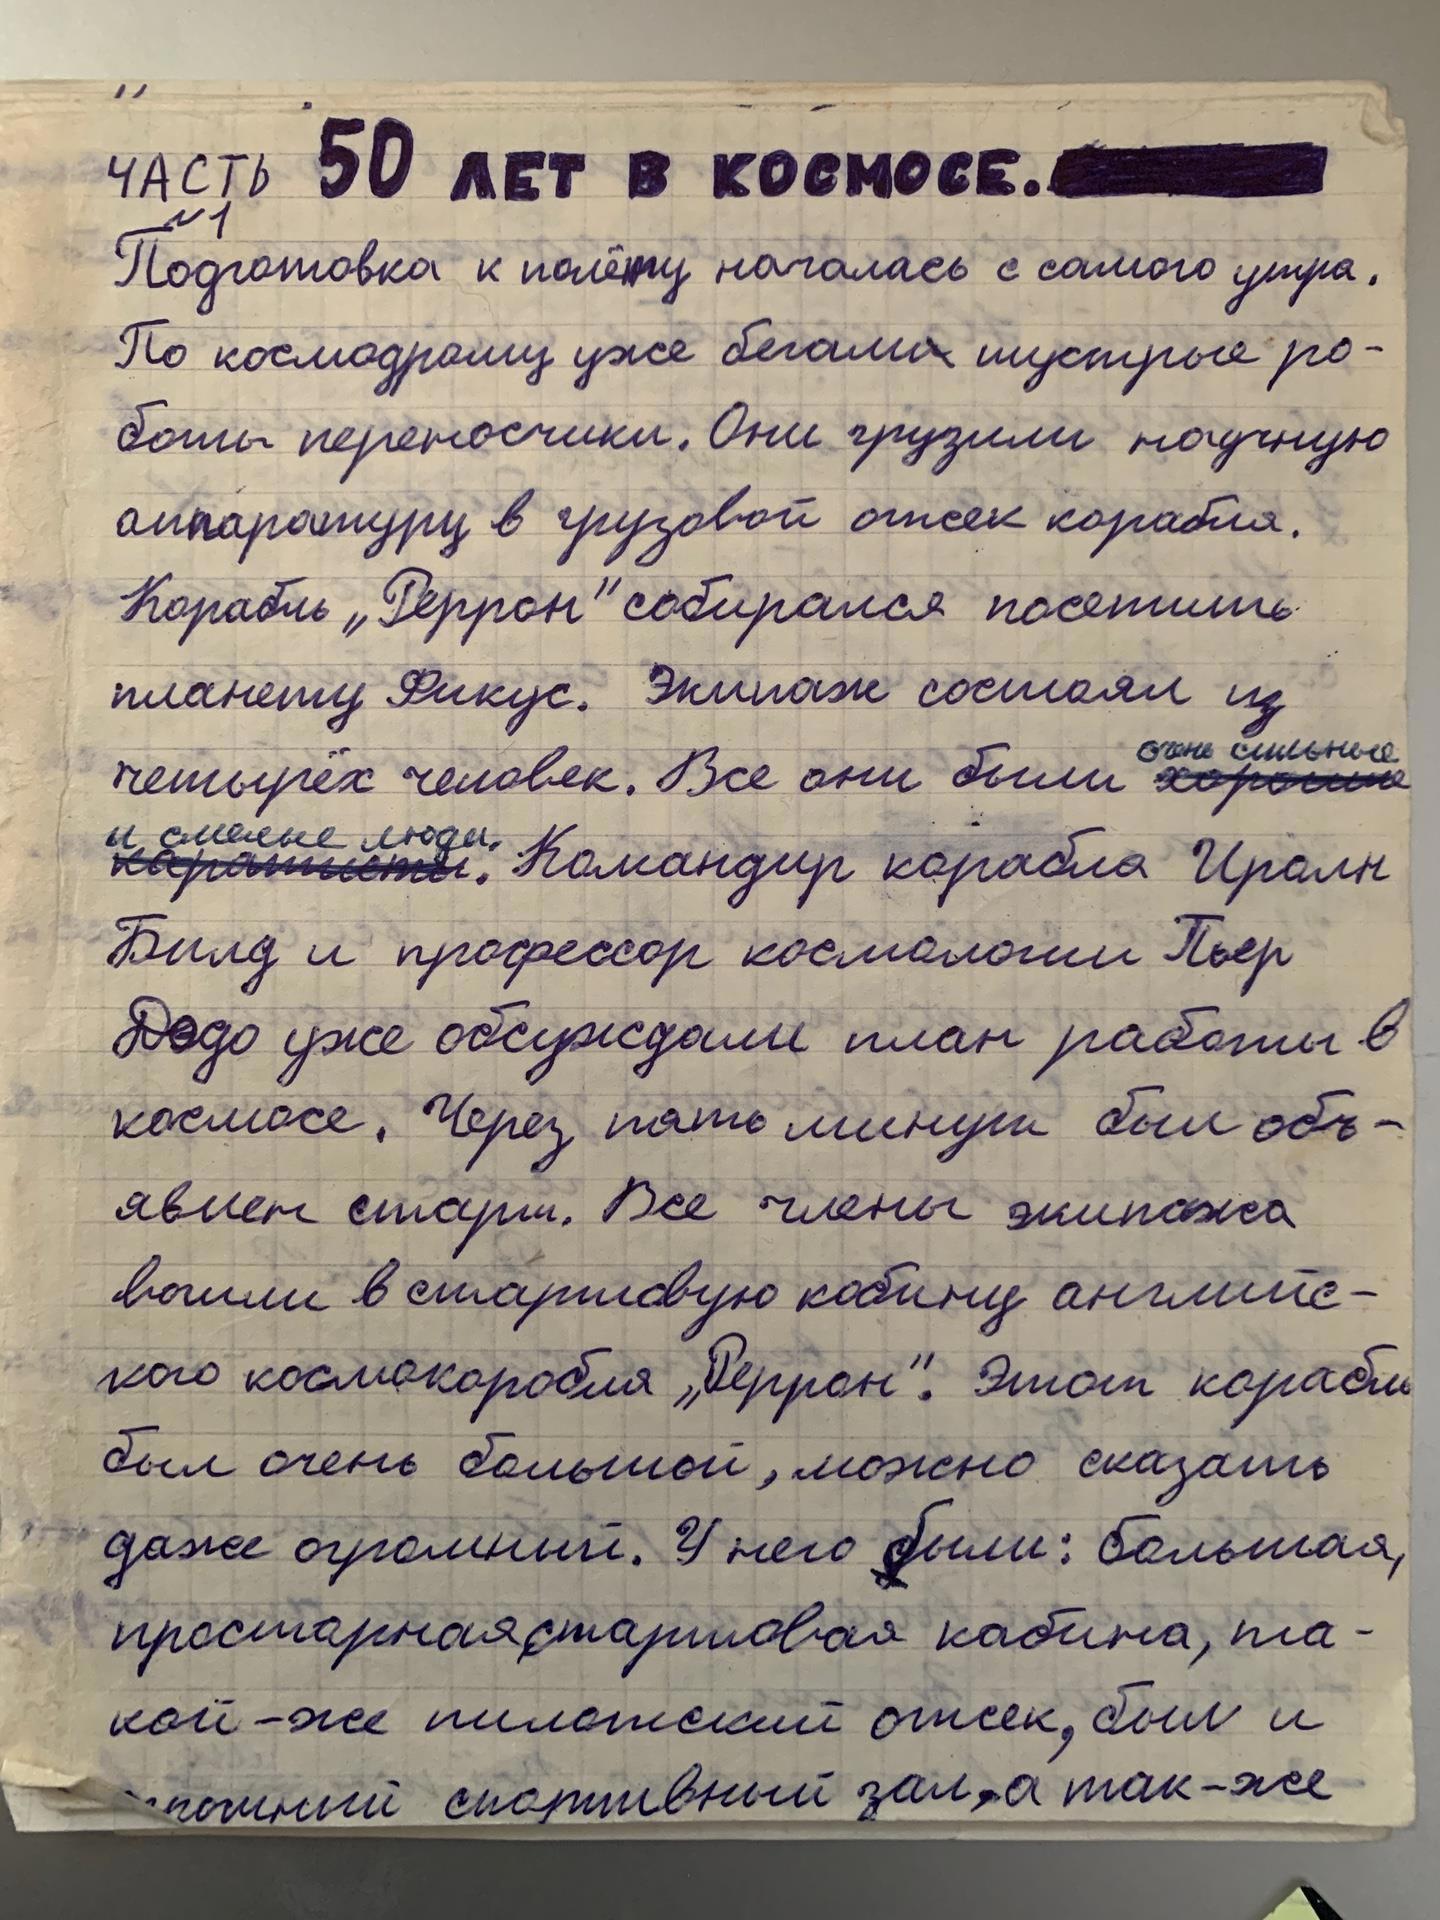 ЧАСТЬ 50 ЛЕТ В КОСМОСЕ.
№1
Подготовка к полёту началась с самого утра.
По космодрому уже бегами шустрые ро-
боты переносчики. Они грузили научную
аппаратуру в грузовой отсек корабля.
Корабль „Террон" собирался посетить
планету Фикус. Экипаж состоял из
четырёх человек. Все они были очень сильные
хорошие
и смелые люди.
каратисты. Командир корабла Иралн
Билд и профессор космологии Пьер
Додо уже обсуждали план работы в
космосе. Через пять минут был объ-
явлен старт. Все члены экипажа
вошли в стартовую кабину английс-
кого космокорабля „Террон". Этот корабль
был очень большой, можно сказать
даже огромный. У него были: большая,
просторная стартовая кабина, та-
кой-же пилотский отсек, был и
спортивный зал, а так-же